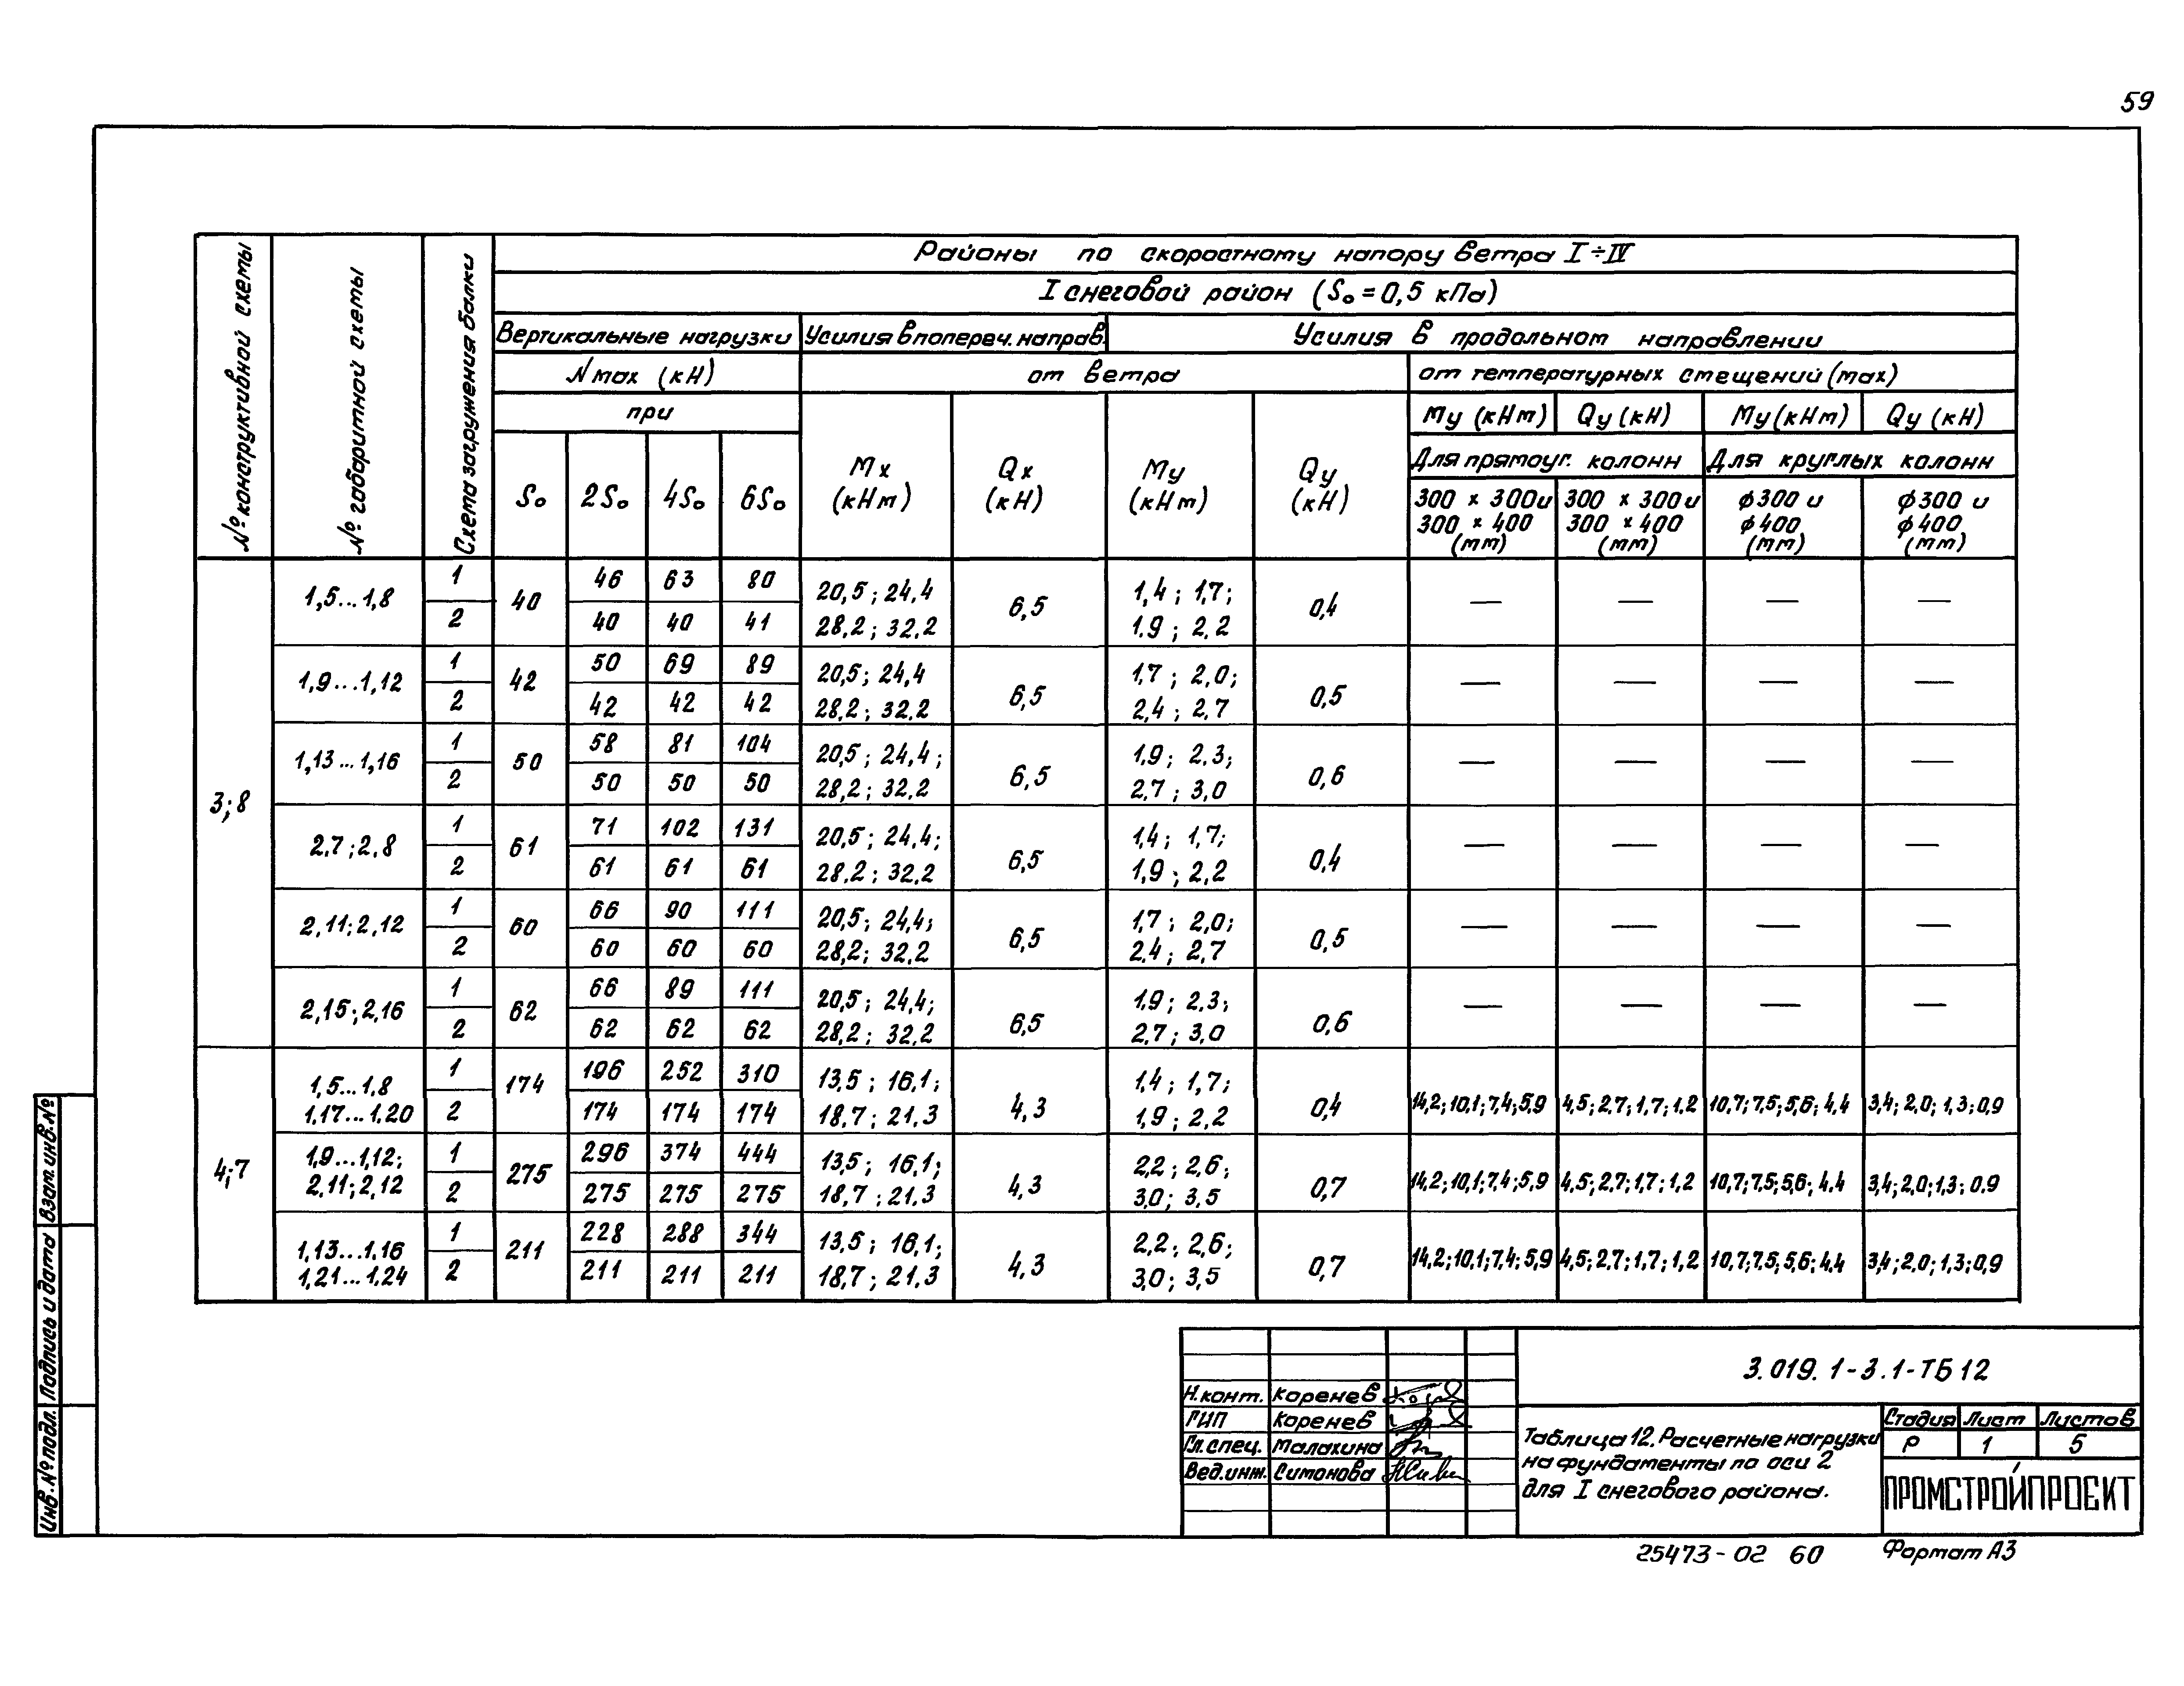 59
Районы по скоростному напору ветра I÷IV
I снеговой район (S₀ = 0,5 кПа)
№ конструктивной схемы
№ габаритной схемы
Схема загружения балки
Вертикальные нагрузки
Усилия в попереч. направ.
Усилия в продольном направлении
Nmax (кН)
от ветра
от температурных смещений (max)
при
S₀ 2S₀ 4S₀ 6S₀
Mx (кНм)
Qx (кН)
My (кНм)
Qy (кН)
My (кНм) Qy (кН) My (кНм) Qy (кН)
Для прямоуг. колонн Для круглых колонн
300 × 300 и 300 × 300 и ϕ300 и ϕ300 и
300 × 400 300 × 400 ϕ400, ϕ400,
(мм) (мм) (мм) (мм)
3;8
1,5...1,8 1 40 46 63 80 20,5; 24,4 6,5 1,4; 1,7; 0,4 — — — —
2 40 40 41 28,2; 32,2 1.9; 2,2
1,9...1,12 1 42 50 69 89 20,5; 24,4 6,5 1,7; 2,0; 0,5 — — — —
2 42 42 42 28,2; 32,2 2,4; 2,7
1,13...1,16 1 50 58 81 104 20,5; 24,4; 6,5 1,9; 2,3; 0,6 — — — —
2 50 50 50 28,2; 32,2 2,7; 3,0
2,7; 2,8 1 61 71 102 131 20,5; 24,4; 6,5 1,4; 1,7; 0,4 — — — —
2 61 61 61 28,2; 32,2 1,9; 2,2
2,11; 2,12 1 60 66 90 111 20,5; 24,4; 6,5 1,7; 2,0; 0,5 — — — —
2 60 60 60 28,2; 32,2 2,4; 2,7
2,15; 2,16 1 62 66 89 111 20,5; 24,4; 6,5 1,9; 2,3; 0,6 — — — —
2 62 62 62 28,2; 32,2 2,7; 3,0
4;7
1,5...1,8 1 174 196 252 310 13,5; 16,1; 4,3 1,4; 1,7; 0,4 14,2; 10,1; 7,4; 5,9 4,5; 2,7; 1,7; 1,2 10,7; 7,5; 5,6; 4,4 3,4; 2,0; 1,3; 0,9
1,17...1,20 2 174 174 174 18,7; 21,3 1,9; 2,2
1,9...1,12; 1 275 296 374 444 13,5; 16,1; 4,3 2,2; 2,6; 0,7 14,2; 10,1; 7,4; 5,9 4,5; 2,7; 1,7; 1,2 10,7; 7,5; 5,6; 4,4 3,4; 2,0; 1,3; 0,9
2,11; 2,12 2 275 275 275 18,7; 21,3 3,0; 3,5
1,13...1,16 1 211 228 288 344 13,5; 16,1; 4,3 2,2; 2,6; 0,7 14,2; 10,1; 7,4; 5,9 4,5; 2,7; 1,7; 1,2 10,7; 7,5; 5,6; 4,4 3,4; 2,0; 1,3; 0,9
1,21...1,24 2 211 211 211 18,7; 21,3 3,0; 3,5
Взам. инв. №
Подпись и дата
Инв. № подл.
3.019.1-3.1-ТБ12
Н.конт. Коренев
ГИП Коренев
Гл.спец. Малахина
Вед.инж. Симонова
Таблица 12. Расчетные нагрузки
на фундаменты по оси 2
для I снегового района.
Стадия Лист Листов
Р 1 5
ПРОМСТРОЙПРОЕКТ
25473-02 60
Формат А3